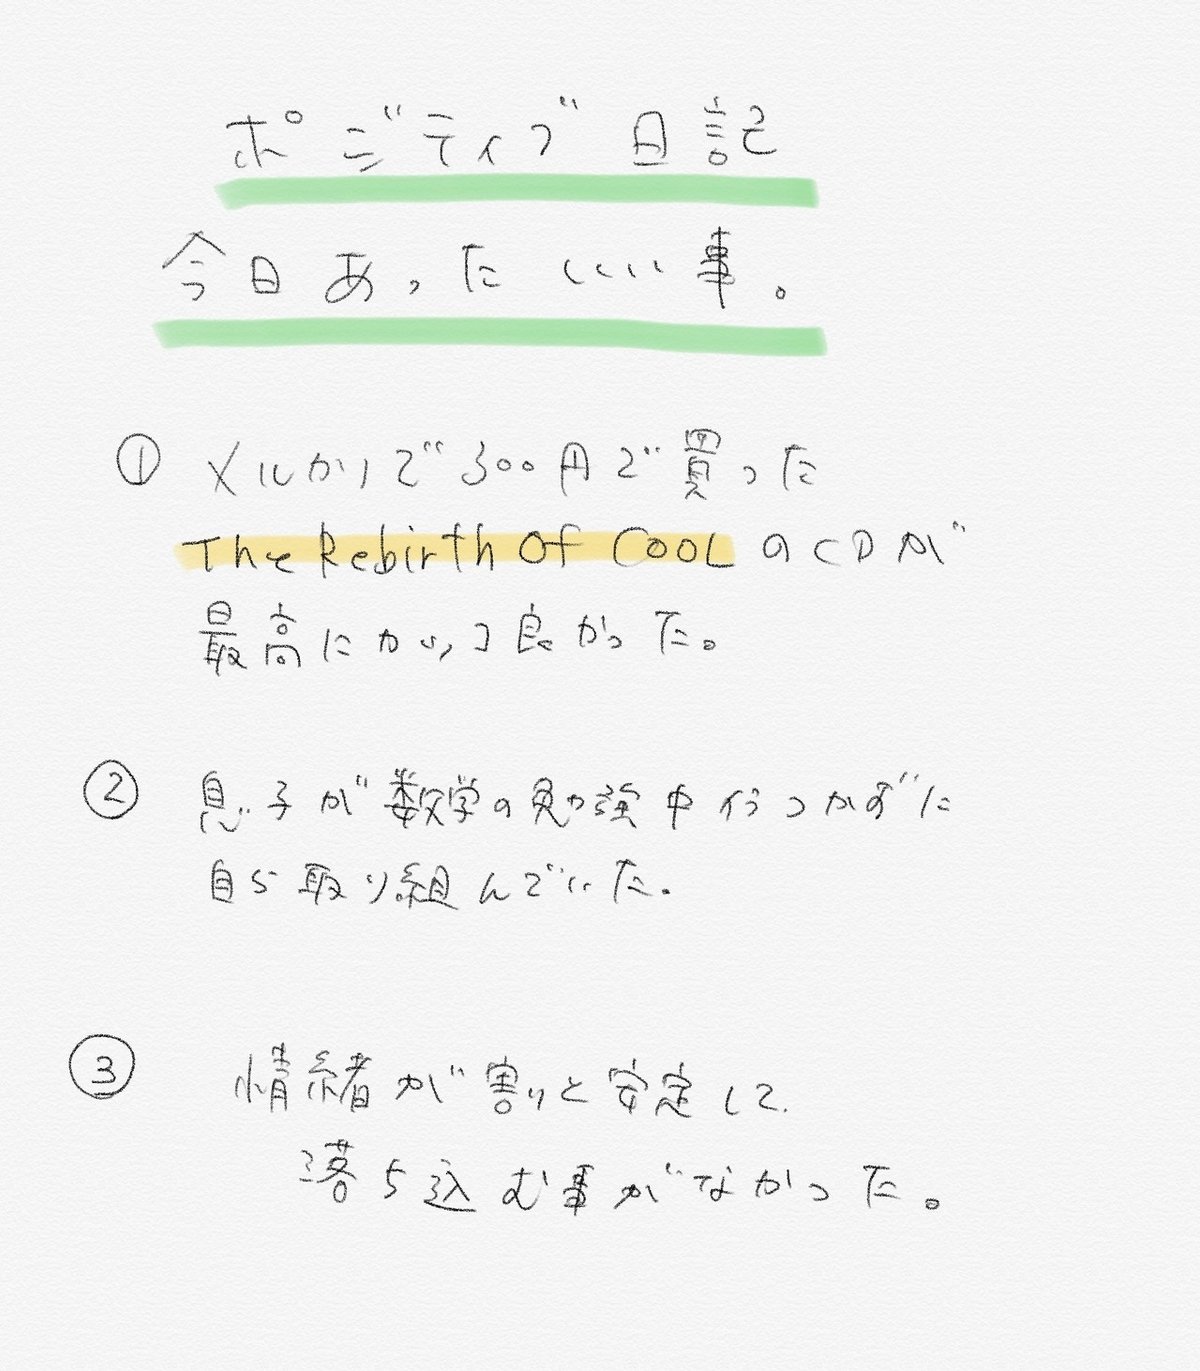 ポジティブ日記
今日あったいい事。
① メルカリで300円で買った
The Rebirth Of CooL のCDが
最高にかっコ良かった。
② 息子が数学の勉強中行つかずに
自ら取り組んでいた。
③ 情緒が割りと安定して
落ち込む事がなかった。